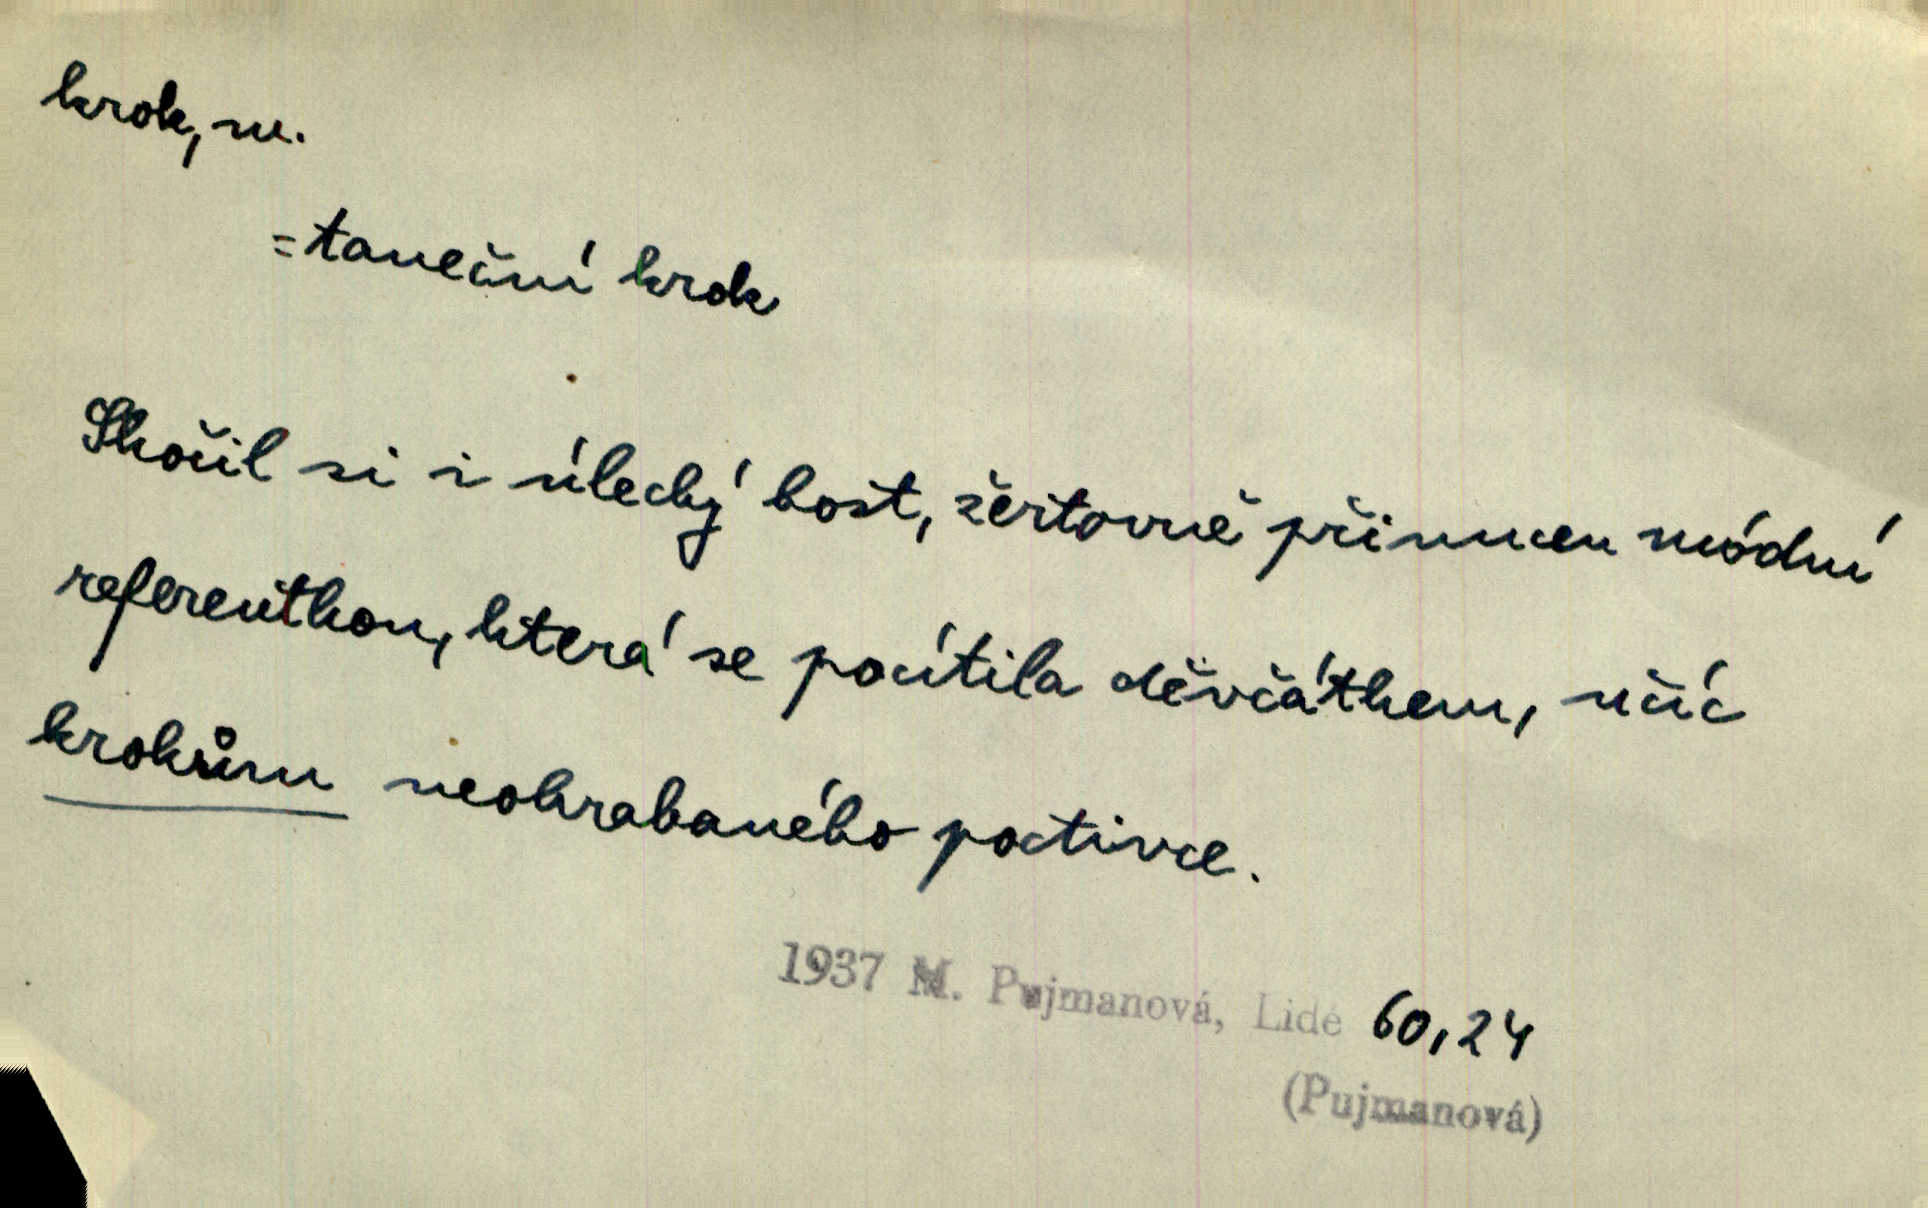 krok, m.
= taneční krok
Skočil si i úlecký host, žertovně přinucen módní
referentkou, která se pocítila děvčátkem, učíc
krokům neohrabaného poctivce.
1937 M. Pujmanová, Lidé 60,24
(Pujmanová)